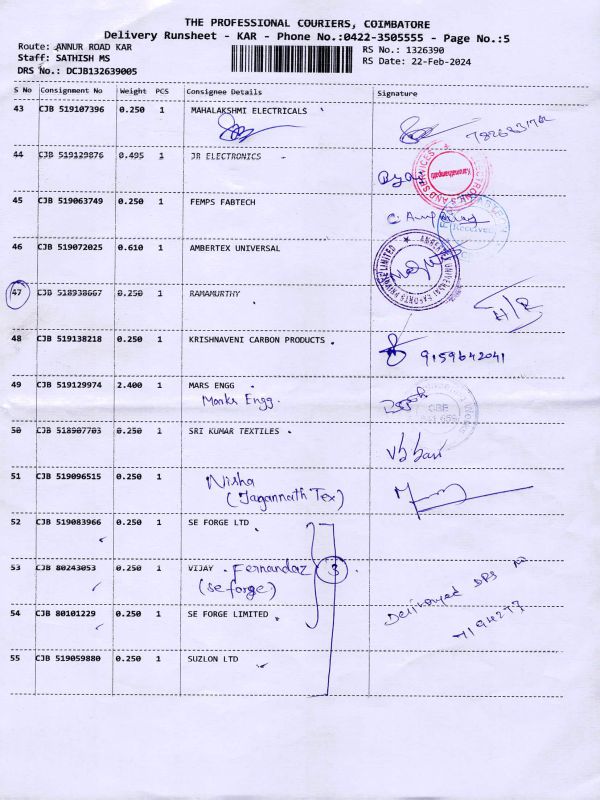 THE PROFESSIONAL COURIERS, COIMBATORE
Delivery Runsheet - KAR - Phone No.:0422-3505555 - Page No.:5
Route: ANNUR ROAD KAR
RS No.: 1326390
Staff: SATHISH MS
RS Date: 22-Feb-2024
DRS No.: DCJB132639005
S No Consignment No Weight PCS Consignee Details Signature
43 CJB 519107396 0.250 1 MAHALAKSHMI ELECTRICALS
44 CJB 519129876 0.495 1 JR ELECTRONICS
45 CJB 519063749 0.250 1 FEMPS FABTECH
46 CJB 519072025 0.610 1 AMBERTEX UNIVERSAL
47 CJB 518938667 0.250 1 RAMAMURTHY
H/R
48 CJB 519138218 0.250 1 KRISHNAVENI CARBON PRODUCTS
9159642041
49 CJB 519129974 2.400 1 MARS ENGG
Engg.
50 CJB 518907703 0.250 1 SRI KUMAR TEXTILES
51 CJB 519096515 0.250 1 Nisha
(Jagannath Tex)
52 CJB 519083966 0.250 1 SE FORGE LTD
53 CJB 80243053 0.250 1 VIJAY Fernandaz 3
(se forge)
54 CJB 80101229 0.250 1 SE FORGE LIMITED
55 CJB 519059880 0.250 1 SUZLON LTD